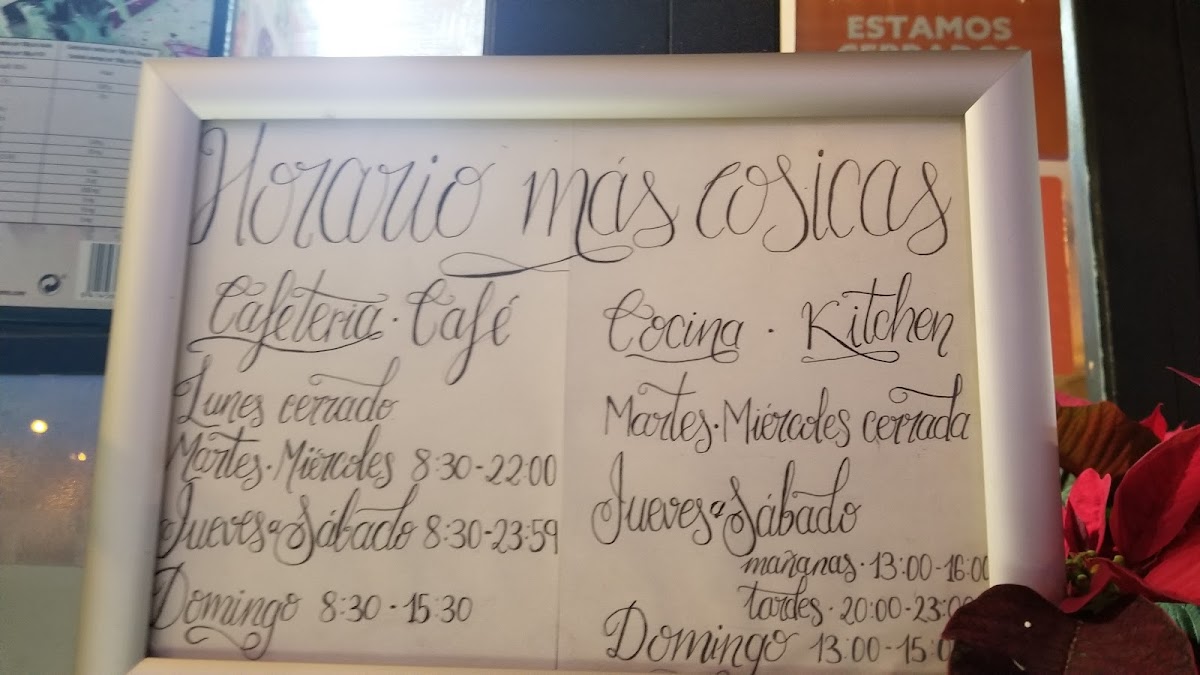 ESTAMOS
CERRADOS
Horario más cosicas
Cafetería · Café
Lunes cerrado
Martes · Miércoles 8:30 - 22:00
Jueves a Sábado 8:30 - 23:59
Domingo 8:30 - 15:30
Cocina · Kitchen
Martes · Miércoles cerrada
Jueves a Sábado
mañanas · 13:00 - 16:00
tardes · 20:00 - 23:00
Domingo 13:00 - 15:0